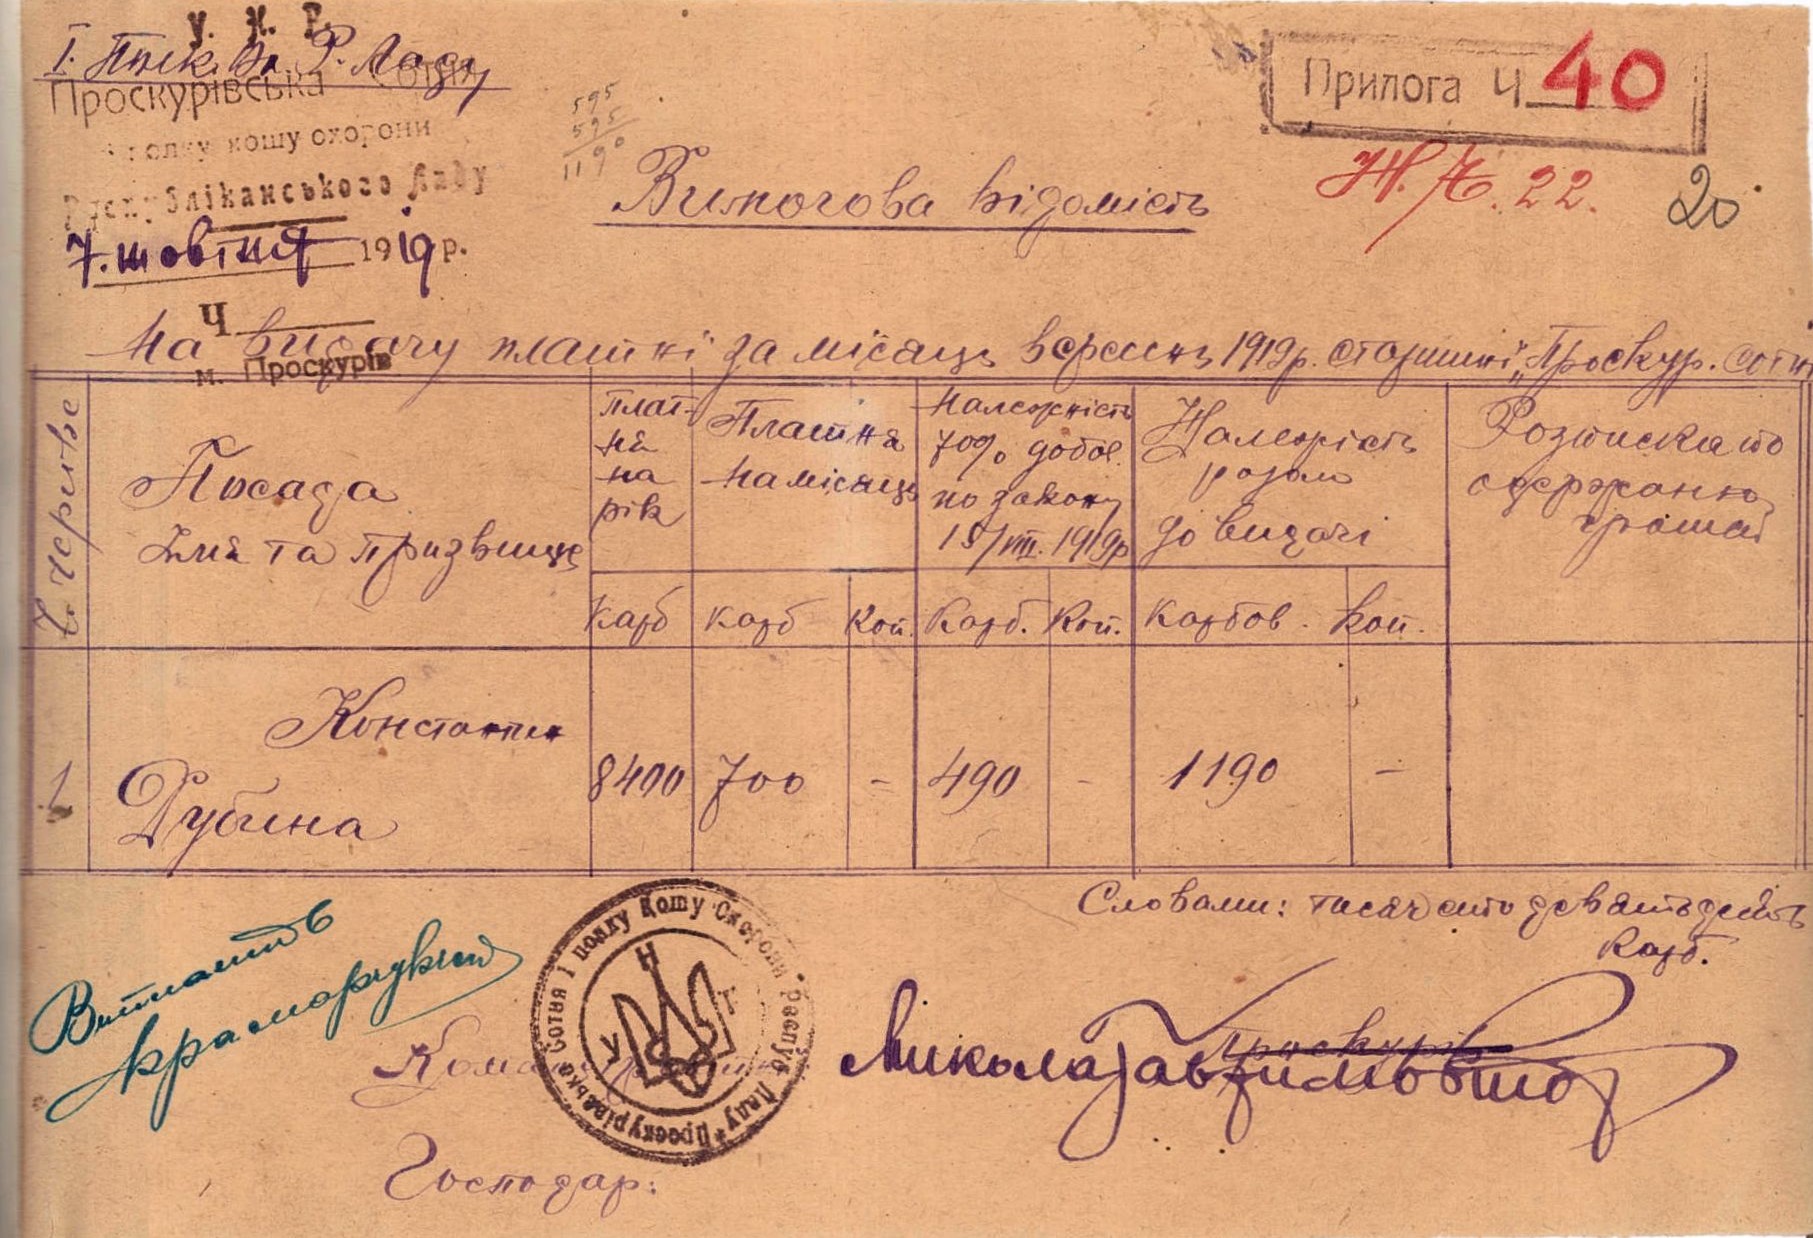 У. Н. Р.
І. Полк. Ох. Р. Ладу
Проскурівська Сотня
полку кошу охорони
Республіканського Ладу
7. жовтня 1919 р.
Ч
м. Проскурів
595
595
1190
Прилога Ч. 40
Ж. А. 22.
20
Вимогова відомість
На видачу платні за місяць вересень 1919 р. старшині „Проскур. сотні
Ч. черги
Посада
Імя та призвище
Плат-
ня
на
рік
Платня
на місяць
Належність
70% добов.
по закону
15/VIII. 1919 р
Належність
разом
до видачі
Розписка по
одержанню
грошей
Карб
карб
Коп.
Карб.
Коп.
Карбов.
Коп.
1
Константин
Дубина
8400
700
-
490
-
1190
-
Словами: тисяч сто девятьдесять
Карб.
Виплатить
Микола Гаврилов
Проскурів
Командир
Господар:
Проскурівська Сотня 1 полку Кошу Охорони Респуб. Ладу
У Н Р